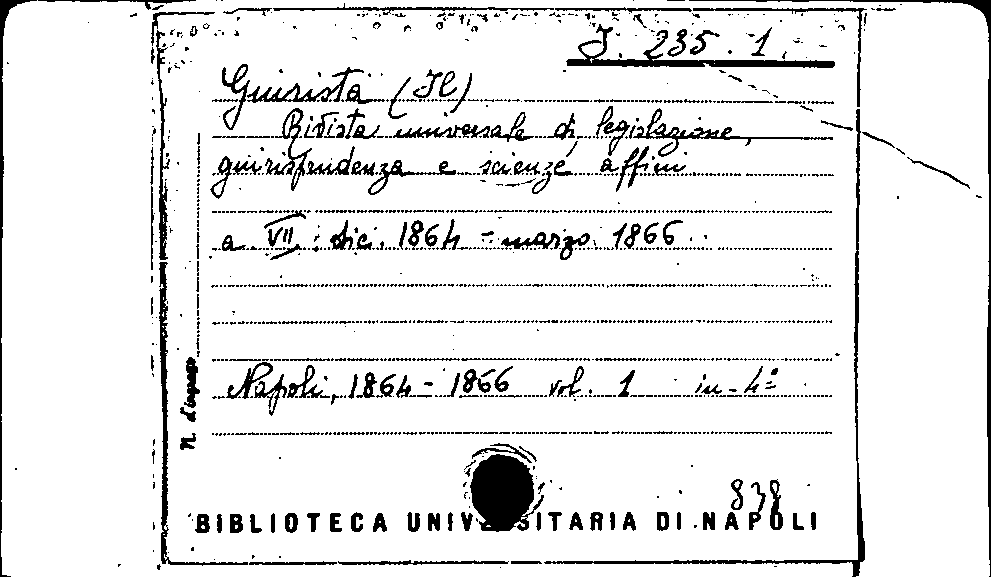 J. 235. 1.
Giurista (Il)
Rivista universale di legislazione,
giurisprudenza e scienze affini
a. VII : dic. 1864 - marzo 1866
Napoli, 1864 - 1866 vol. 1 in-4º
N. d'ingresso
838
BIBLIOTECA UNIVERSITARIA DI NAPOLI